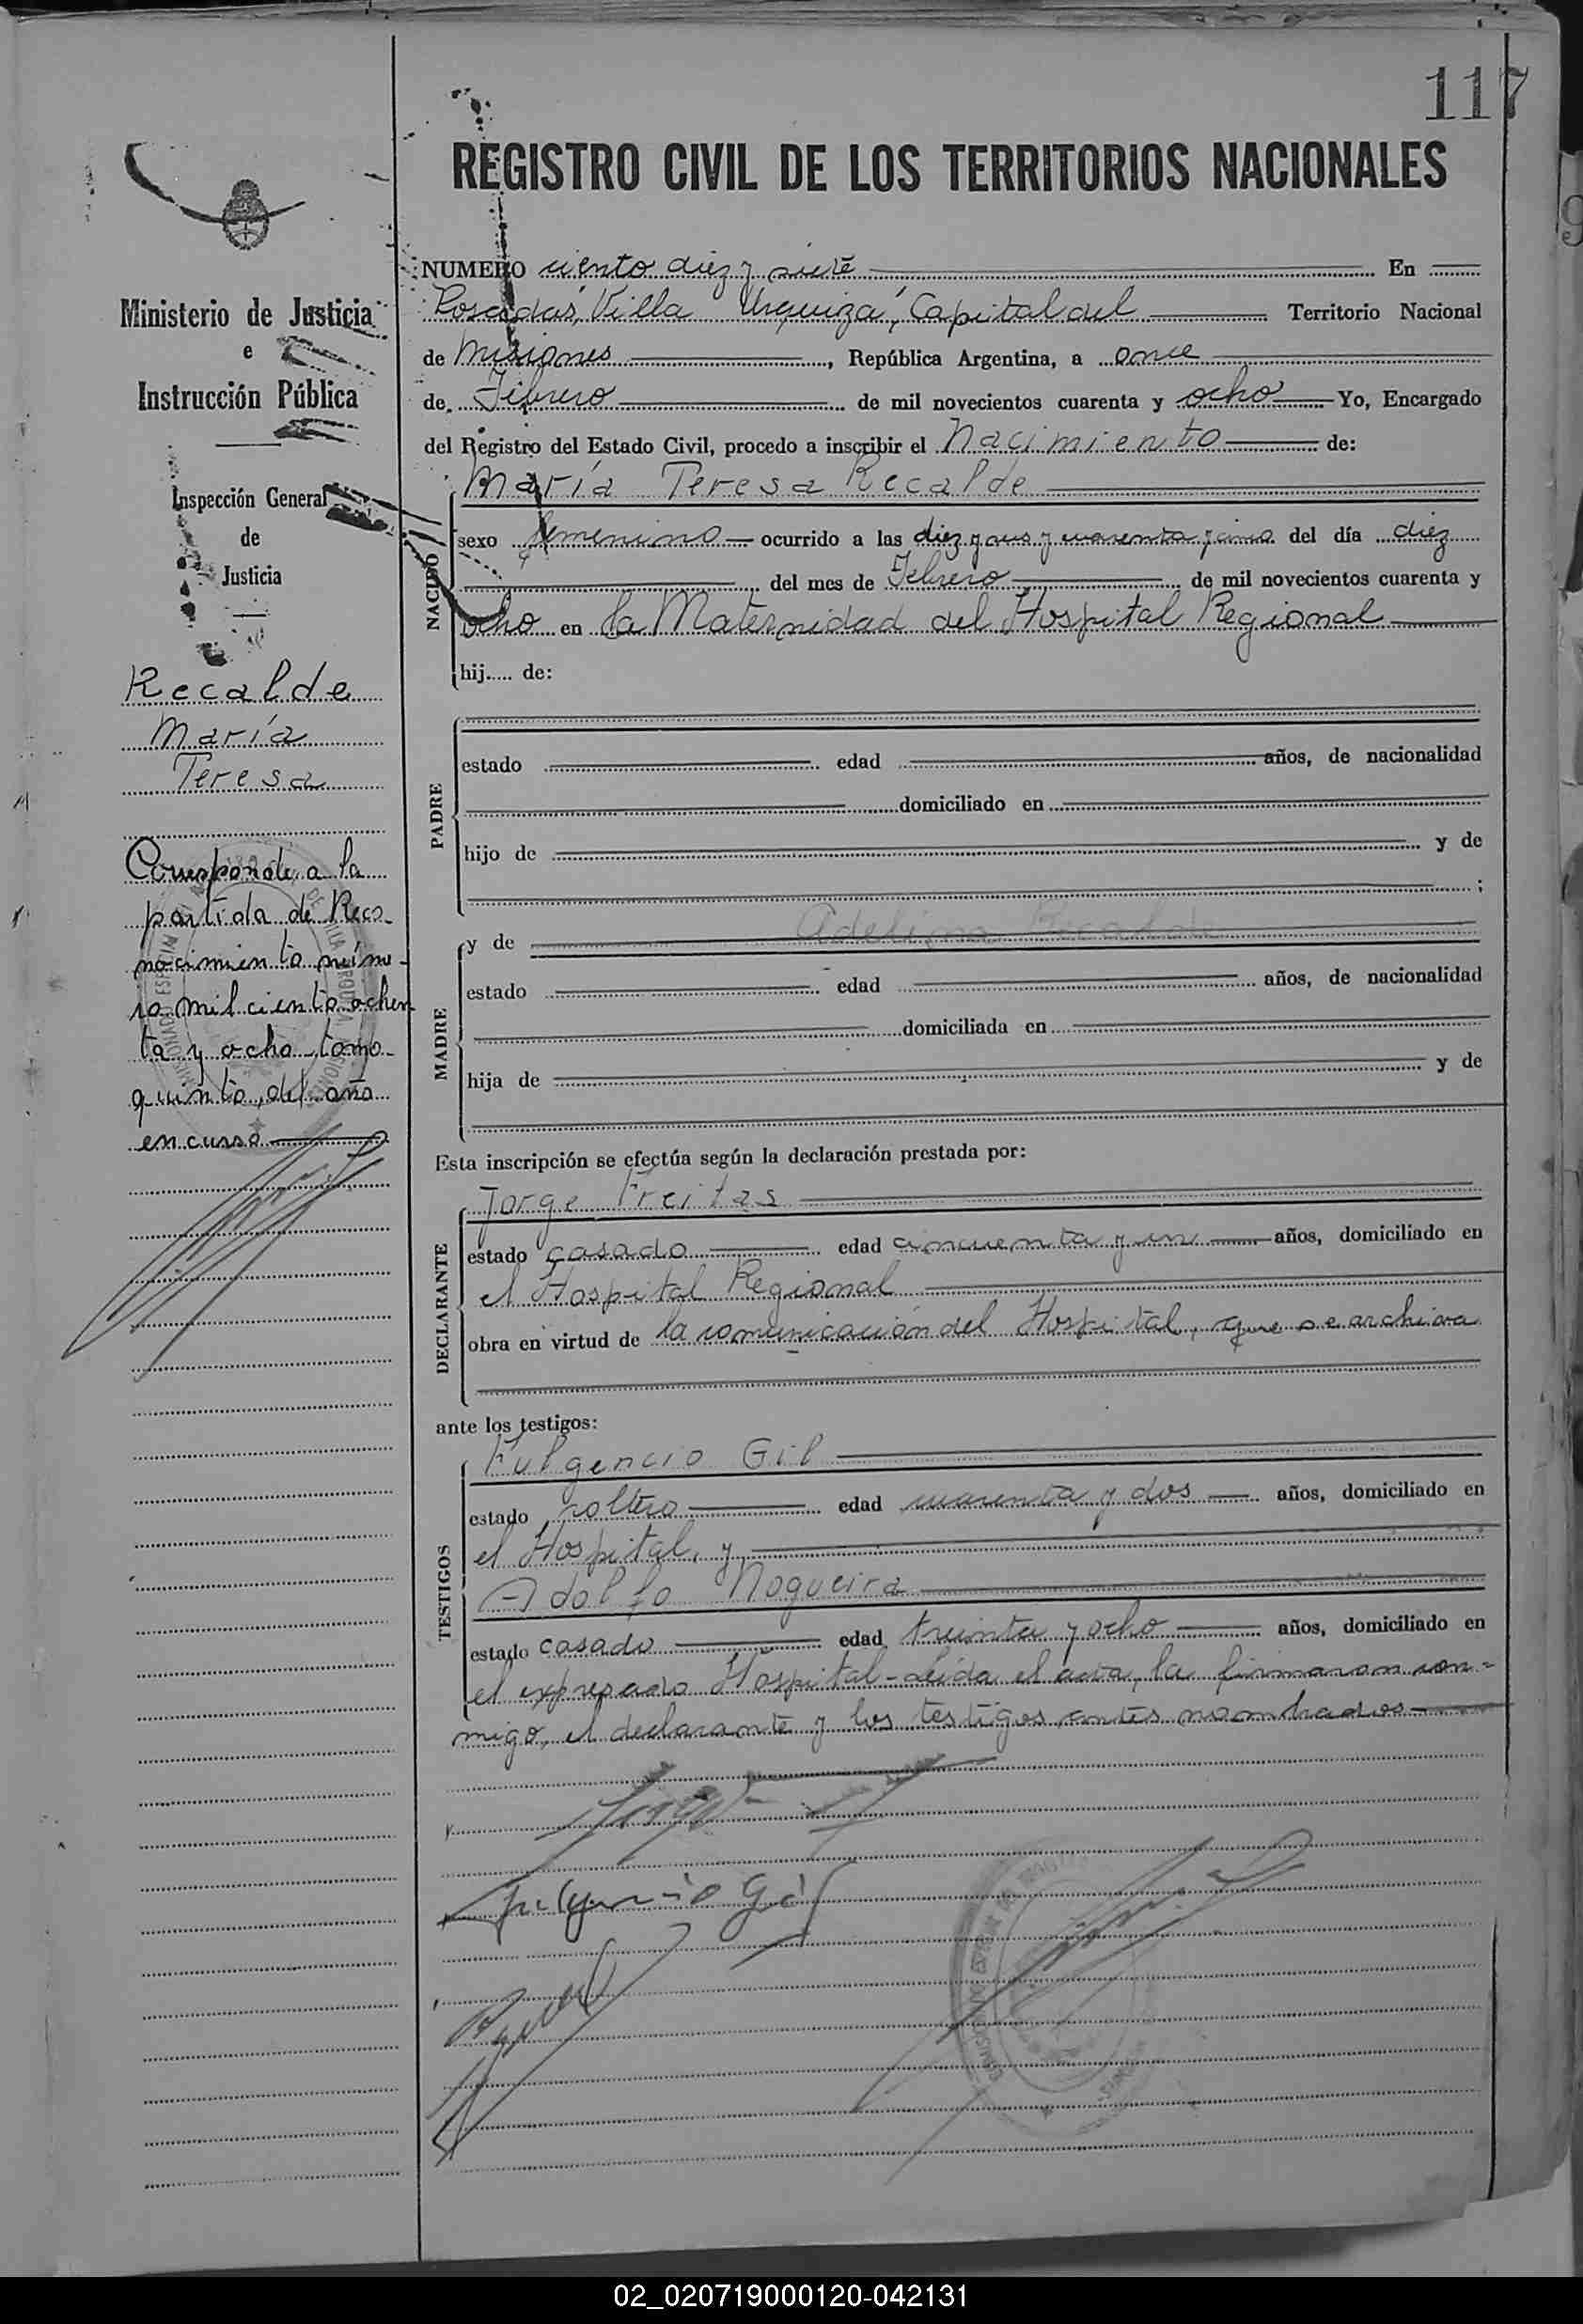 117
REGISTRO CIVIL DE LOS TERRITORIOS NACIONALES
NUMERO ciento diez y siete En
Posadas, Villa Urquiza, Capital del Territorio Nacional
de Misiones, República Argentina, a once
de Febrero de mil novecientos cuarenta y ocho Yo, Encargado
del Registro del Estado Civil, procedo a inscribir el Nacimiento de:
María Teresa Recalde
NACIDO
sexo femenino ocurrido a las diez y seis y cuarenta y cinco del día diez
del mes de Febrero de mil novecientos cuarenta y
ocho en la Maternidad del Hospital Regional
hij..... de:
PADRE
estado edad años, de nacionalidad
domiciliado en
hijo de y de
;
MADRE
y de Adelina Recalde
estado edad años, de nacionalidad
domiciliada en
hija de y de
Esta inscripción se efectúa según la declaración prestada por:
DECLARANTE
Jorge Freitas
estado casado edad cincuenta y un años, domiciliado en
el Hospital Regional
obra en virtud de la comunicación del Hospital, que se archiva
ante los testigos:
TESTIGOS
Fulgencio Gil
estado soltero edad cuarenta y dos años, domiciliado en
el Hospital, y
Adolfo Nogueira
estado casado edad treinta y ocho años, domiciliado en
el expresado Hospital - Leída el acta, la firmaron con-
migo, el declarante y los testigos antes nombrados
Fulgencio Gil
Ministerio de Justicia
e
Instrucción Pública
Inspección General
de
Justicia
Recalde
María
Teresa
Corresponde a la
partida de Reco-
nocimiento núme-
ro mil ciento ochen
ta y ocho tomo
quinto, del año
en curso
02_020719000120-042131